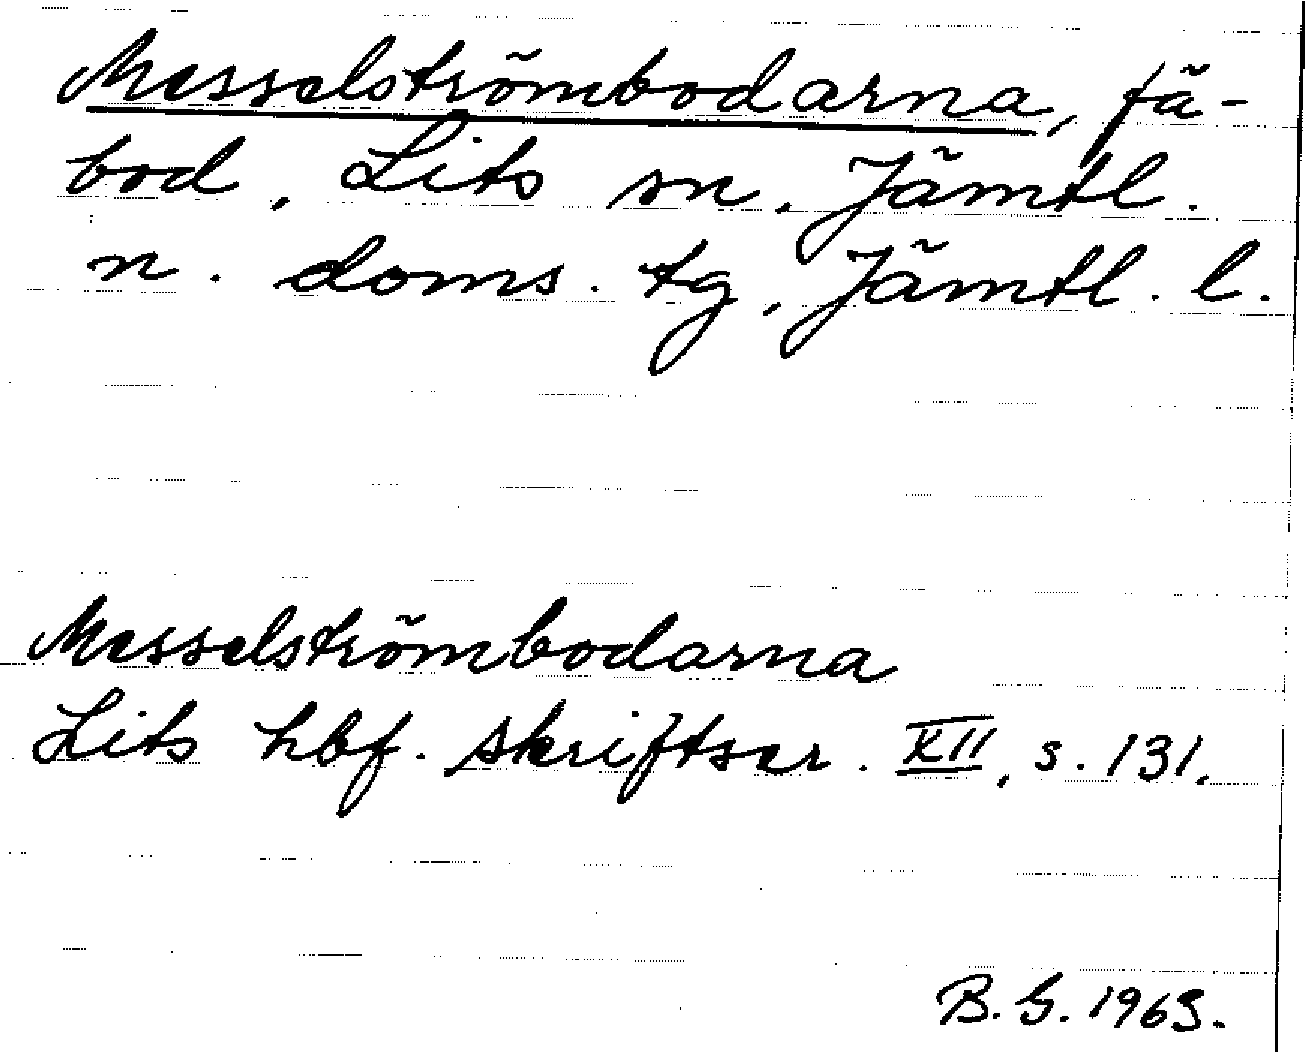 Messelströmbodarna, fä-
bod, Lits sn, Jämtl.
n. doms. tg, Jämtl. l.
Messelströmbodarna
Lits hbf. skriftser. XII, s. 131.
B. G. 1963.